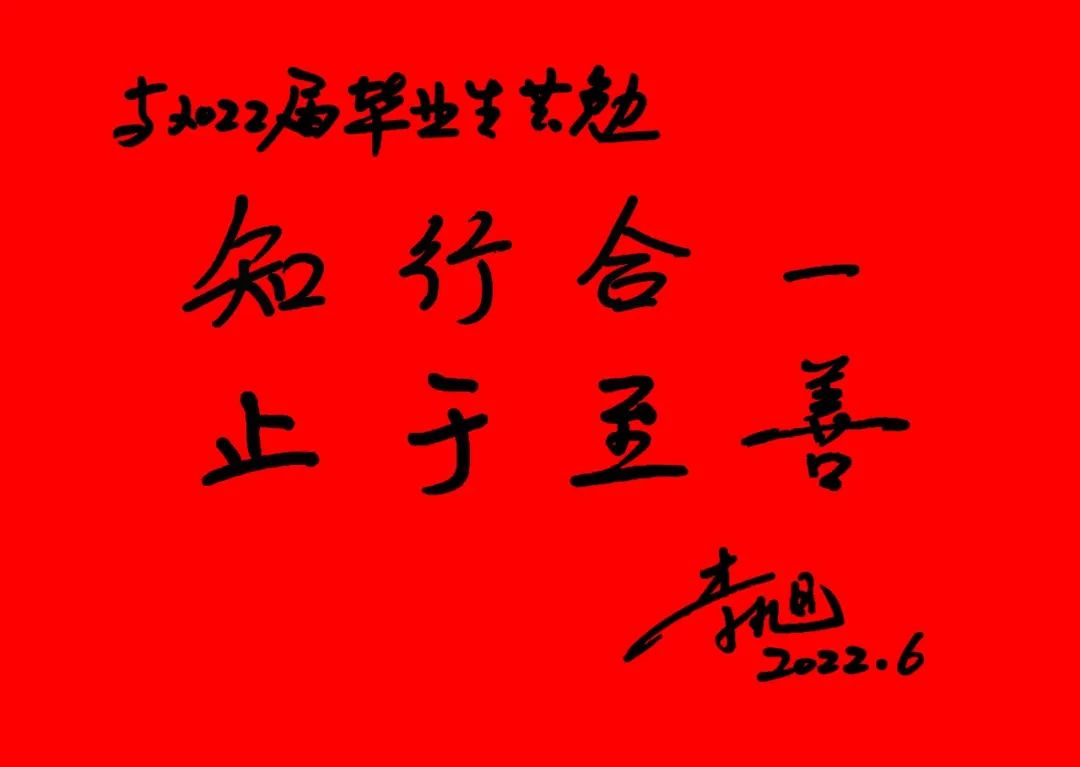 与2022届毕业生共勉
知行合一
止于至善
李旭
2022.6